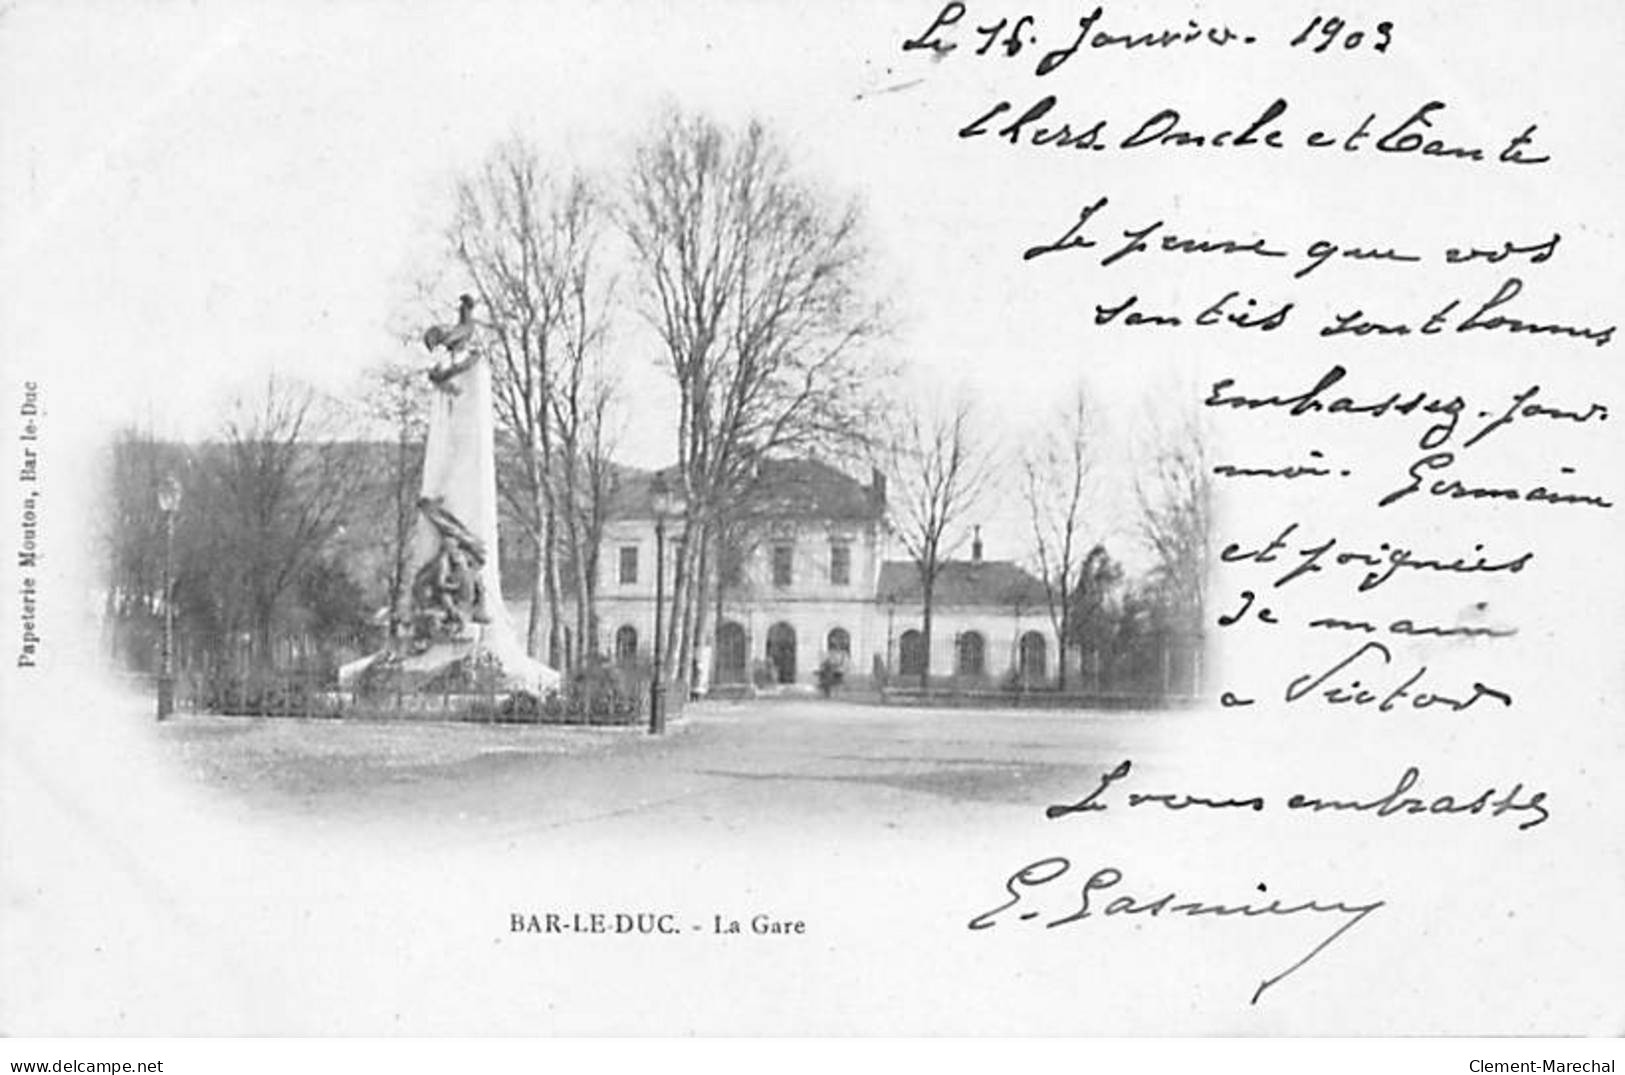 Le 15 Janvier. 1903
Chers Oncle et Tante
Je pense que vos
santés sont bonnes
embrassez. pour
moi. Germaine
et poignées
de main
a Victor
Je vous embrasse
E. Gasnier
Papeterie Mouton, Bar le-Duc
BAR-LE-DUC. - La Gare
www.delcampe.net
Clement-Marechal